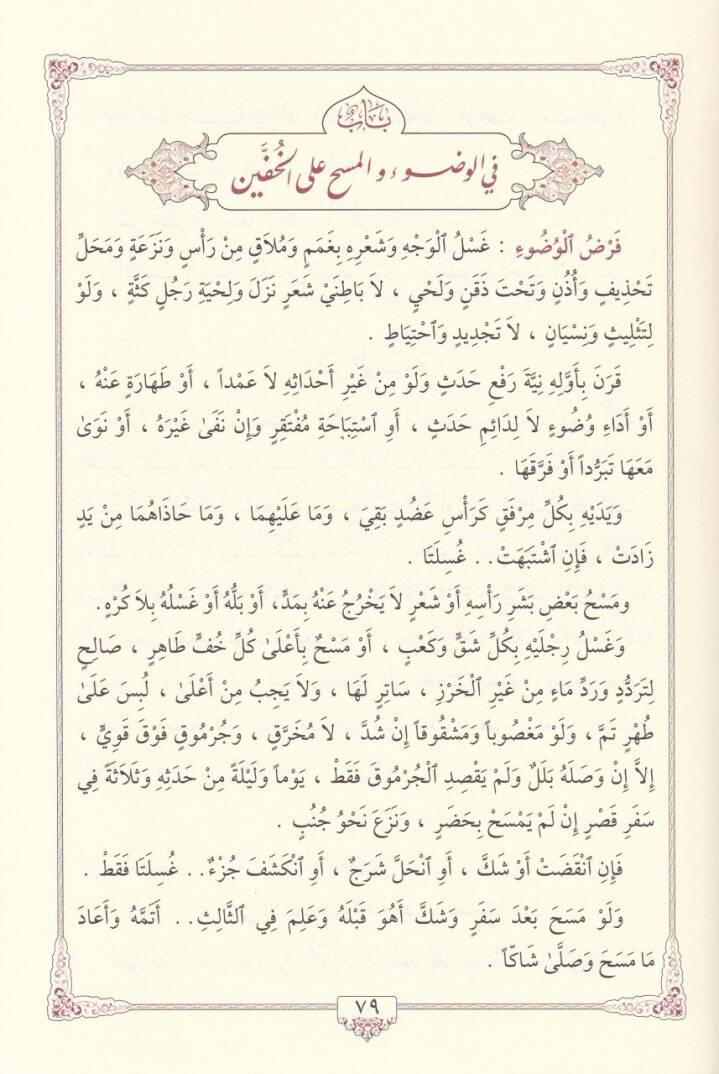 بَابٌ
في الوضوء والمسح على الخُفَّين
فَرْضُ ٱلْوُضُوءِ : غَسْلُ ٱلْوَجْهِ وَشَعْرِهِ بِغَمَمٍ وَمُلاَقٍ مِنْ رَأْسٍ وَنَزَعَةٍ وَمَحَلِّ
تَحْذِيفٍ وَأُذُنٍ وَتَحْتَ ذَقَنٍ وَلَحْيٍ ، لاَ بَاطِنَيْ شَعَرٍ نَزَلَ وَلِحْيَةِ رَجُلٍ كَثَّةٍ ، وَلَوْ
لِتَثْلِيثٍ وَنِسْيَانٍ ، لاَ تَجْدِيدٍ وَٱحْتِيَاطٍ .
قَرَنَ بِأَوَّلِهِ نِيَّةَ رَفْعِ حَدَثٍ وَلَوْ مِنْ غَيْرِ أَحْدَاثِهِ لاَ عَمْداً ، أَوْ طَهَارَةٍ عَنْهُ ،
أَوْ أَدَاءِ وُضُوءٍ لاَ لِدَائِمِ حَدَثٍ ، أَوِ ٱسْتِبَاحَةِ مُفْتَقِرٍ وَإِنْ نَفَىٰ غَيْرَهُ ، أَوْ نَوَىٰ
مَعَهَا تَبَرُّداً أَوْ فَرَّقَهَا .
وَيَدَيْهِ بِكُلِّ مِرْفَقٍ كَرَأْسِ عَضُدٍ بَقِيَ ، وَمَا عَلَيْهِمَا ، وَمَا حَاذَاهُمَا مِنْ يَدٍ
زَادَتْ ، فَإِنِ ٱشْتَبَهَتْ .. غُسِلَتَا .
ومَسْحُ بَعْضِ بَشَرِ رَأْسِهِ أَوْ شَعْرٍ لاَ يَخْرُجُ عَنْهُ بِمَدٍّ، أَوْ بَلُّهُ أَوْ غَسْلُهُ بِلاَ كُرْهٍ.
وَغَسْلُ رِجْلَيْهِ بِكُلِّ شَقٍّ وَكَعْبٍ ، أَوْ مَسْحٌ بِأَعْلَىٰ كُلِّ خُفٍّ طَاهِرٍ ، صَالِحٍ
لِتَرَدُّدٍ وَرَدِّ مَاءٍ مِنْ غَيْرِ ٱلْخَرْزِ ، سَاتِرٍ لَهَا ، وَلاَ يَجِبُ مِنْ أَعْلَىٰ ، لُبِسَ عَلَىٰ
طُهْرٍ تَمَّ ، وَلَوْ مَغْصُوباً وَمَشْقُوقاً إِنْ شُدَّ ، لاَ مُخَرَّقٍ ، وَجُرْمُوقٍ فَوْقَ قَوِيٍّ ،
إِلاَّ إِنْ وَصَلَهُ بَلَلٌ وَلَمْ يَقْصِدِ ٱلْجُرْمُوقَ فَقَطْ ، يَوْماً وَلَيْلَةً مِنْ حَدَثِهِ وَثَلاَثَةً فِي
سَفَرِ قَصْرٍ إِنْ لَمْ يَمْسَحْ بِحَضَرٍ ، وَنَزَعَ نَحْوُ جُنُبٍ .
فَإِنِ ٱنْقَضَتْ أَوْ شَكَّ ، أَوِ ٱنْحَلَّ شَرَجٌ ، أَوِ ٱنْكَشَفَ جُزْءٌ .. غُسِلَتَا فَقَطْ .
وَلَوْ مَسَحَ بَعْدَ سَفَرٍ وَشَكَّ أَهُوَ قَبْلَهُ وَعَلِمَ فِي ٱلثَّالِثِ .. أَتَمَّهُ وَأَعَادَ
مَا مَسَحَ وَصَلَّىٰ شَاكّاً .
٧٩